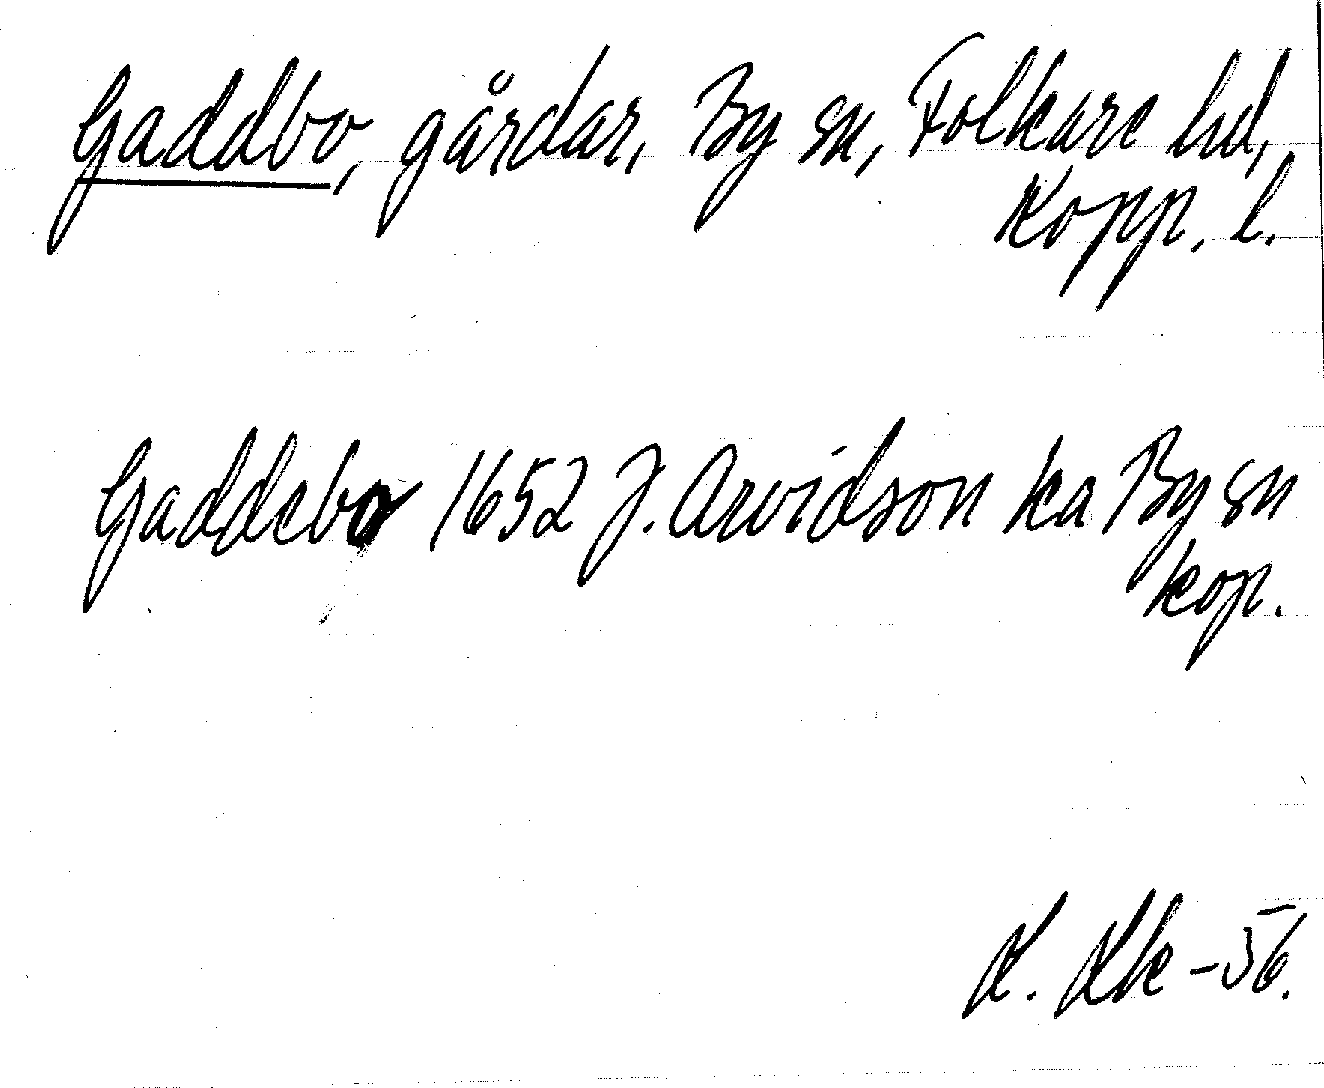 Gaddbo, gårdar, By sn, Folkare hd,
Kopp. l.
Gaddebo 1652 J. Arvidson ka By sn
kop.
-56.